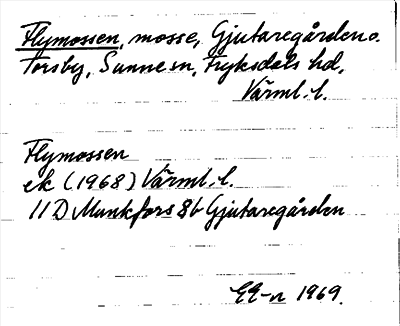 Flymossen, mosse, Gjutaregården o.
Torsby, Sunne sn, Fryksdals hd,
Värml. l.
Flymossen
ek (1968) Värml. l.
11D Munkfors 8b Gjutaregården
1969.